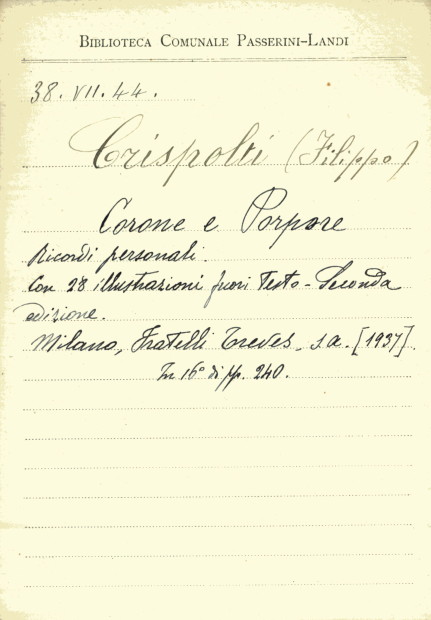 BIBLIOTECA COMUNALE PASSERINI-LANDI
38. VII. 44.
Crispolti (Filippo)
Corone e Porpore
Ricordi personali.
Con 28 illustrazioni fuori testo - Seconda
edizione.
Milano, Fratelli Treves, s.a. [1937].
In 16° di pp. 240.